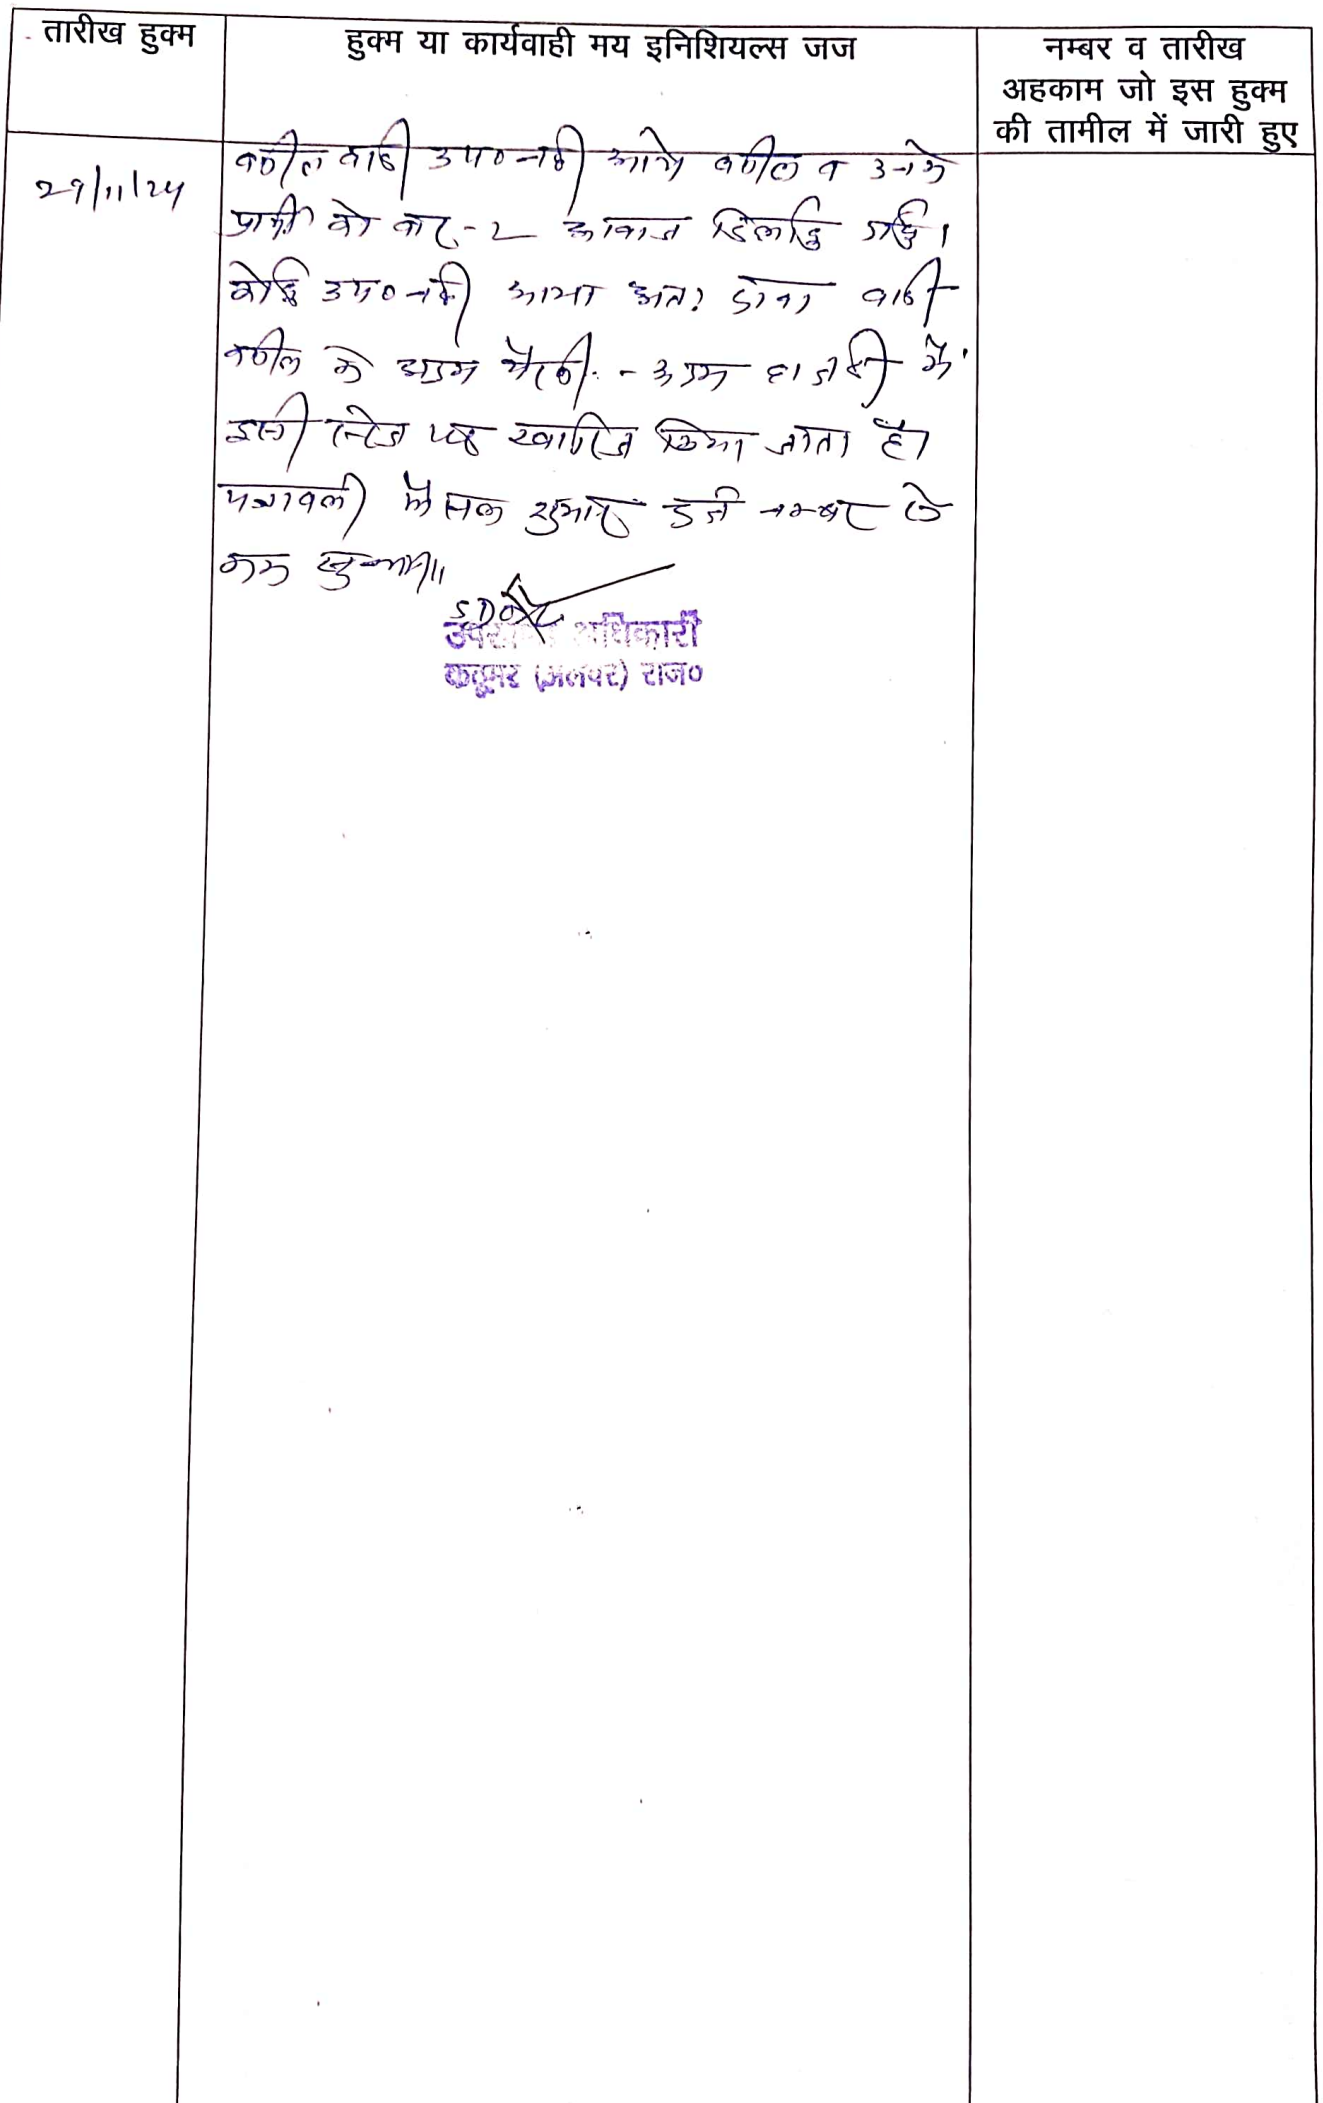 तारीख हुक्म
हुक्म या कार्यवाही मय इनिशियल्स जज
नम्बर व तारीख
अहकाम जो इस हुक्म
की तामील में जारी हुए
29/11/24
वकील वादी उप० नही आये वकील व उनके
प्रार्थी को बार-2 आवाज दिलाई गई।
कोई उप० नही आया अतः दावा वादी
वकील के अदम पैरवी - अदम हाजरी में
इसी स्टेज पर खारिज किया जाता है।
पत्रावली फैसल शुमार दर्ज नम्बर से
कम
SDO
उपखण्ड अधिकारी
कठूमर (अलवर) राज०